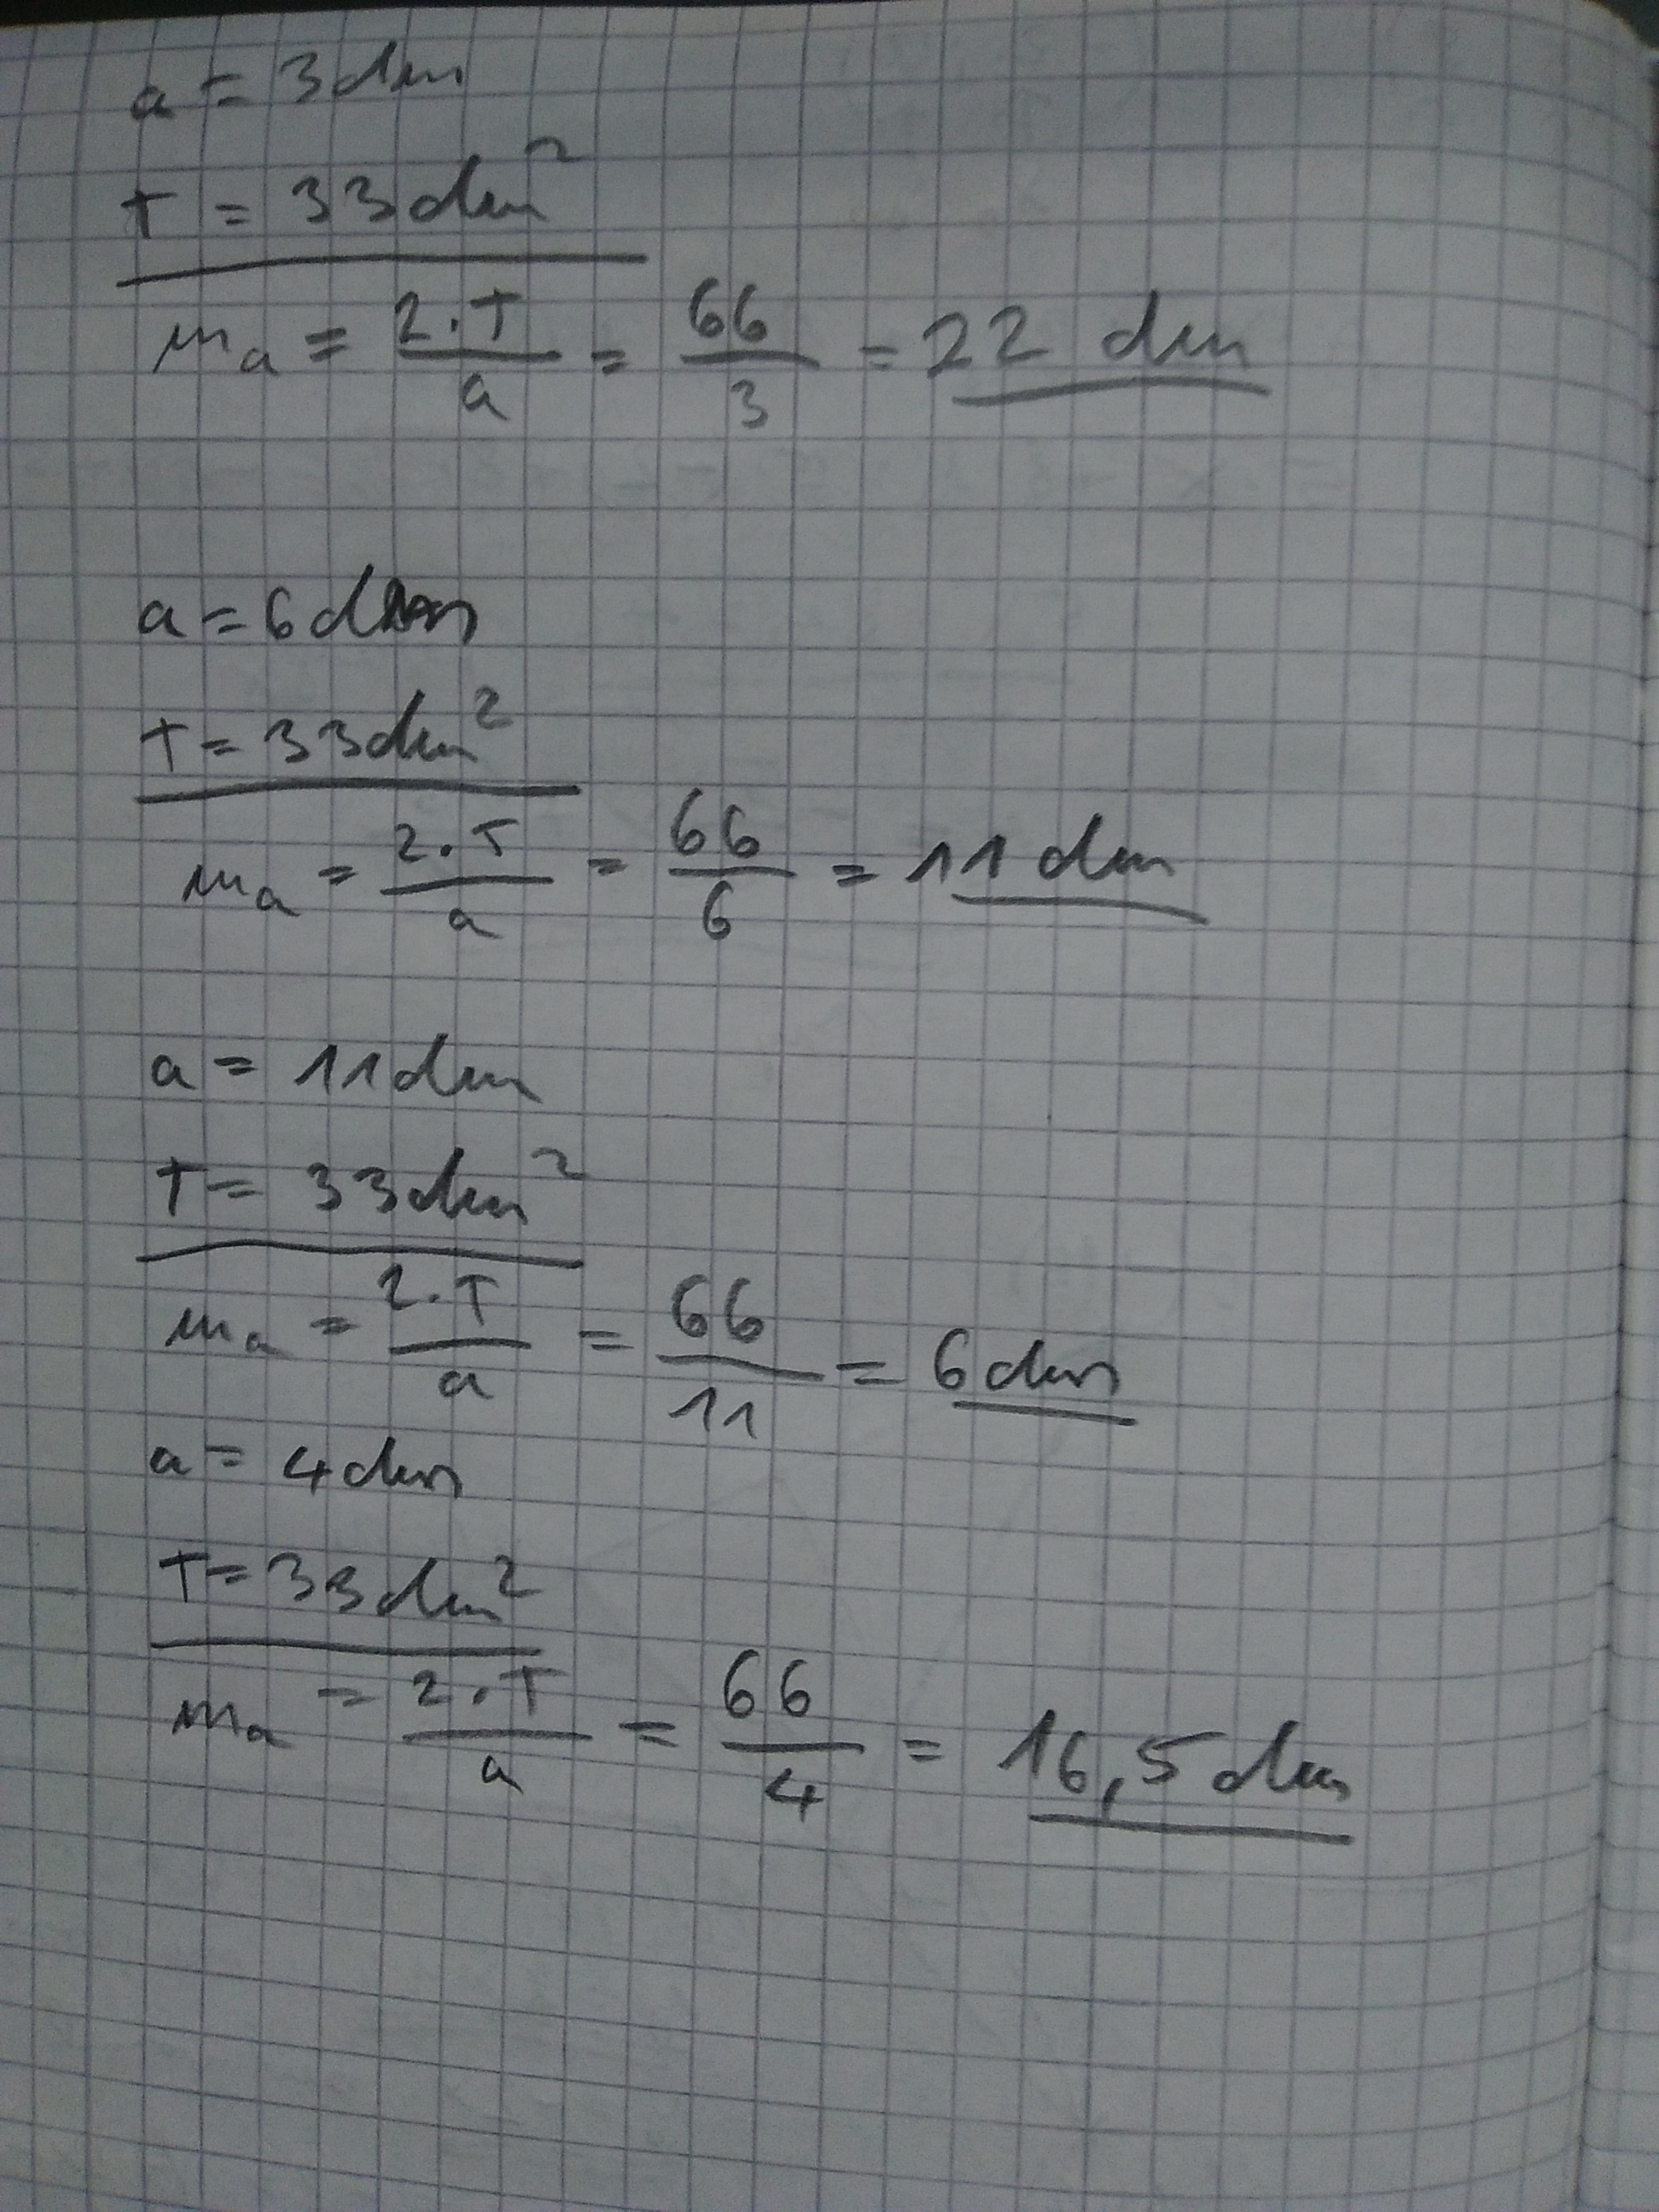 a = 3 dm
T = 33 dm²
mₐ = 2·T/a = 66/3 = 22 dm
a = 6 dm
T = 33 dm²
mₐ = 2·T/a = 66/6 = 11 dm
a = 11 dm
T = 33 dm²
mₐ = 2·T/a = 66/11 = 6 dm
a = 4 dm
T = 33 dm²
mₐ = 2·T/a = 66/4 = 16,5 dm